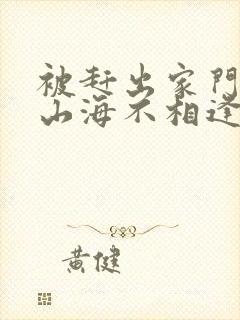 被赶出家門
山海不相逢
黃健